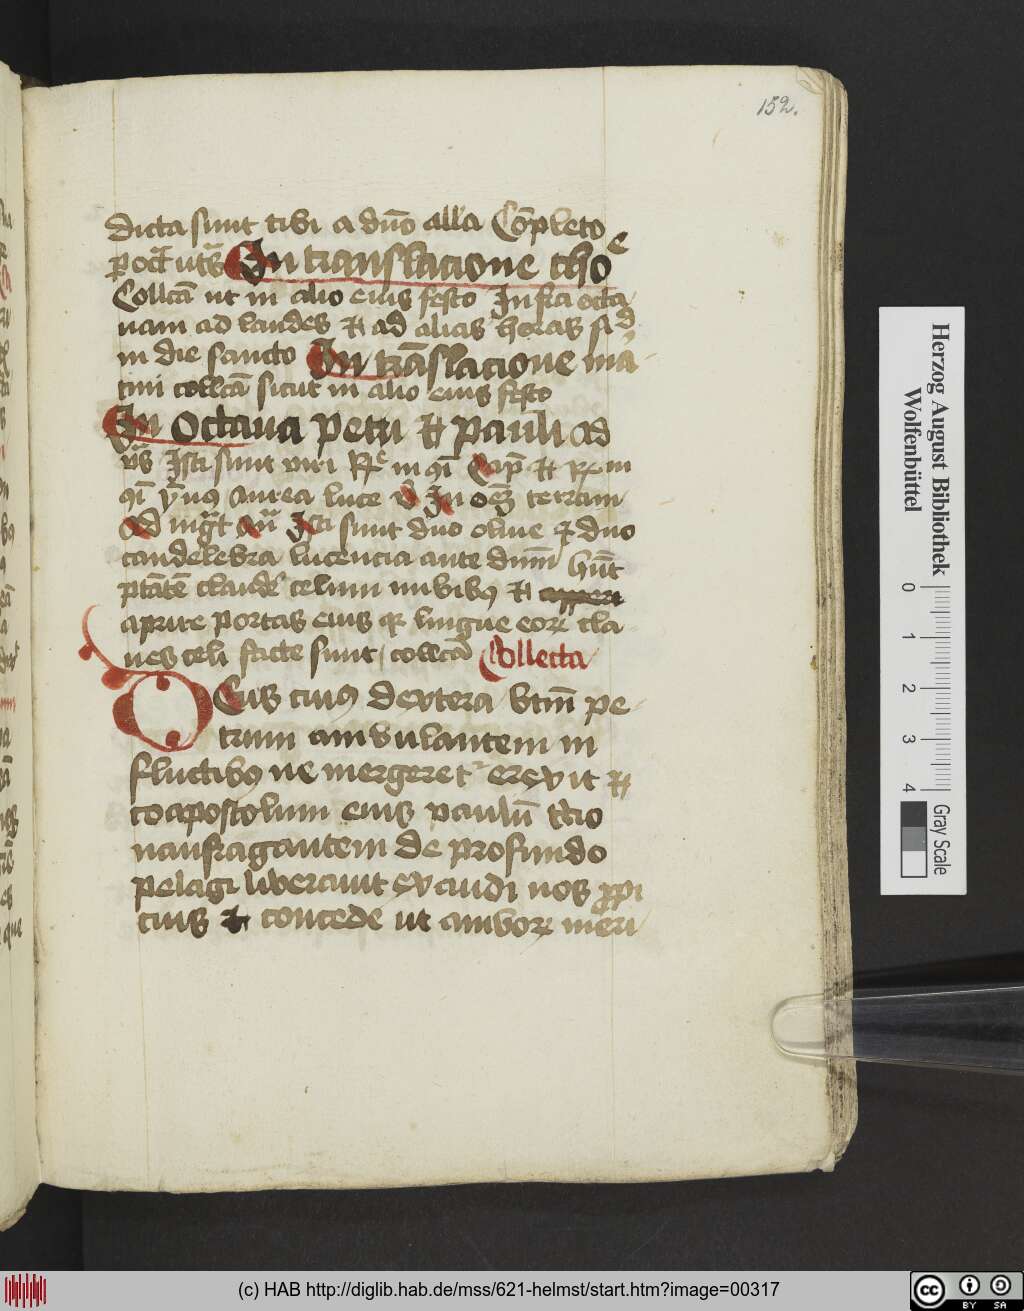 152.
dicta sunt tibi a dn̄o alla Cōpleto
p octā ut s̄ In translacione tho
e
Collcā ut in alio eius festo Infra octa
uam ad laudes et ad alias horas s̄ d
in die sancto In trāslacione mar
tini collcā sicut in alio eius festo
In Octaua petri et pauli ad
v̄s Isti sunt viri R in qi Cap̄ et R in
qi ẏnus Aurea luce v̄ In oēm terram
ad mgt̄ an̄ Isti sunt duo oliue et duo
candelebra lucencia ante dnm̄ hn̄t
ptātē claudē celum nubibus et apperi
aprire portas eius qr lingue eor cla
ues celi facte sunt collcā Collecta
Deus cuius dextera btm̄ pe
trum ambulantem in
fluctibus ne mergeret erexit et
coapostolum eius paulū tcio
naufragantem de profundo
pelagi liberauit exaudi nos ppi
cius et concede ut ambor meri
Herzog August Bibliothek
Wolfenbüttel
0 1 2 3 4
Gray Scale
(c) HAB http://diglib.hab.de/mss/621-helmst/start.htm?image=00317
cc BY SA